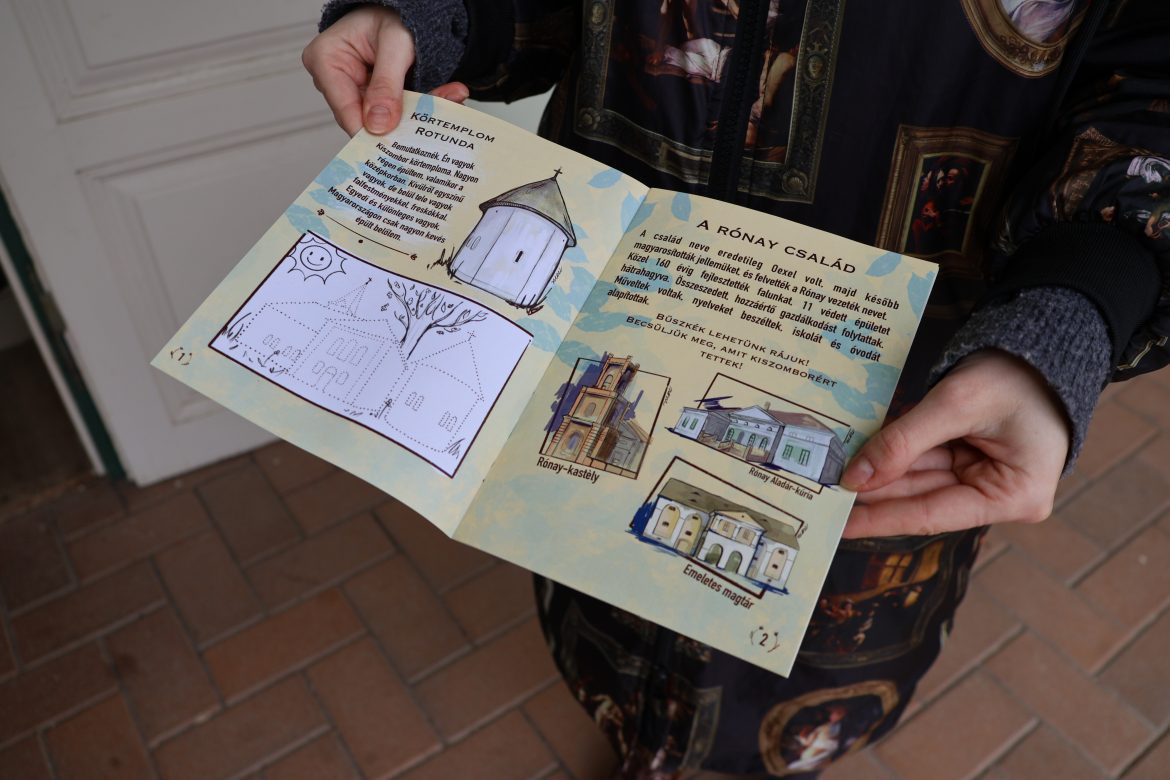 KÖRTEMPLOM
ROTUNDA
Bemutatkoznék. Én vagyok
Kiszombor körtemploma. Nagyon
régen épültem, valamikor a
középkorban. Kívülről egyszínű
vagyok, de belül tele vagyok
falfestményekkel, freskókkal.
Egyedi és különleges vagyok,
Magyarországon csak nagyon kevés
épült belőlem.
1
A RÓNAY CSALÁD
A család neve eredetileg Oexel volt, majd később
magyarosították jellemüket, és felvették a Rónay vezeték nevet.
Közel 160 évig fejlesztették falunkat. 11 védett épületet
hátrahagyva. Összeszedett, hozzáértő gazdálkodást folytattak.
Műveltek voltak, nyelveket beszéltek, iskolát és óvodát
alapítottak.
BÜSZKÉK LEHETÜNK RÁJUK!
BECSÜLJÜK MEG, AMIT KISZOMBORÉRT
TETTEK!
Rónay-kastély
Rónay Aladár-kúria
Emeletes magtár
2